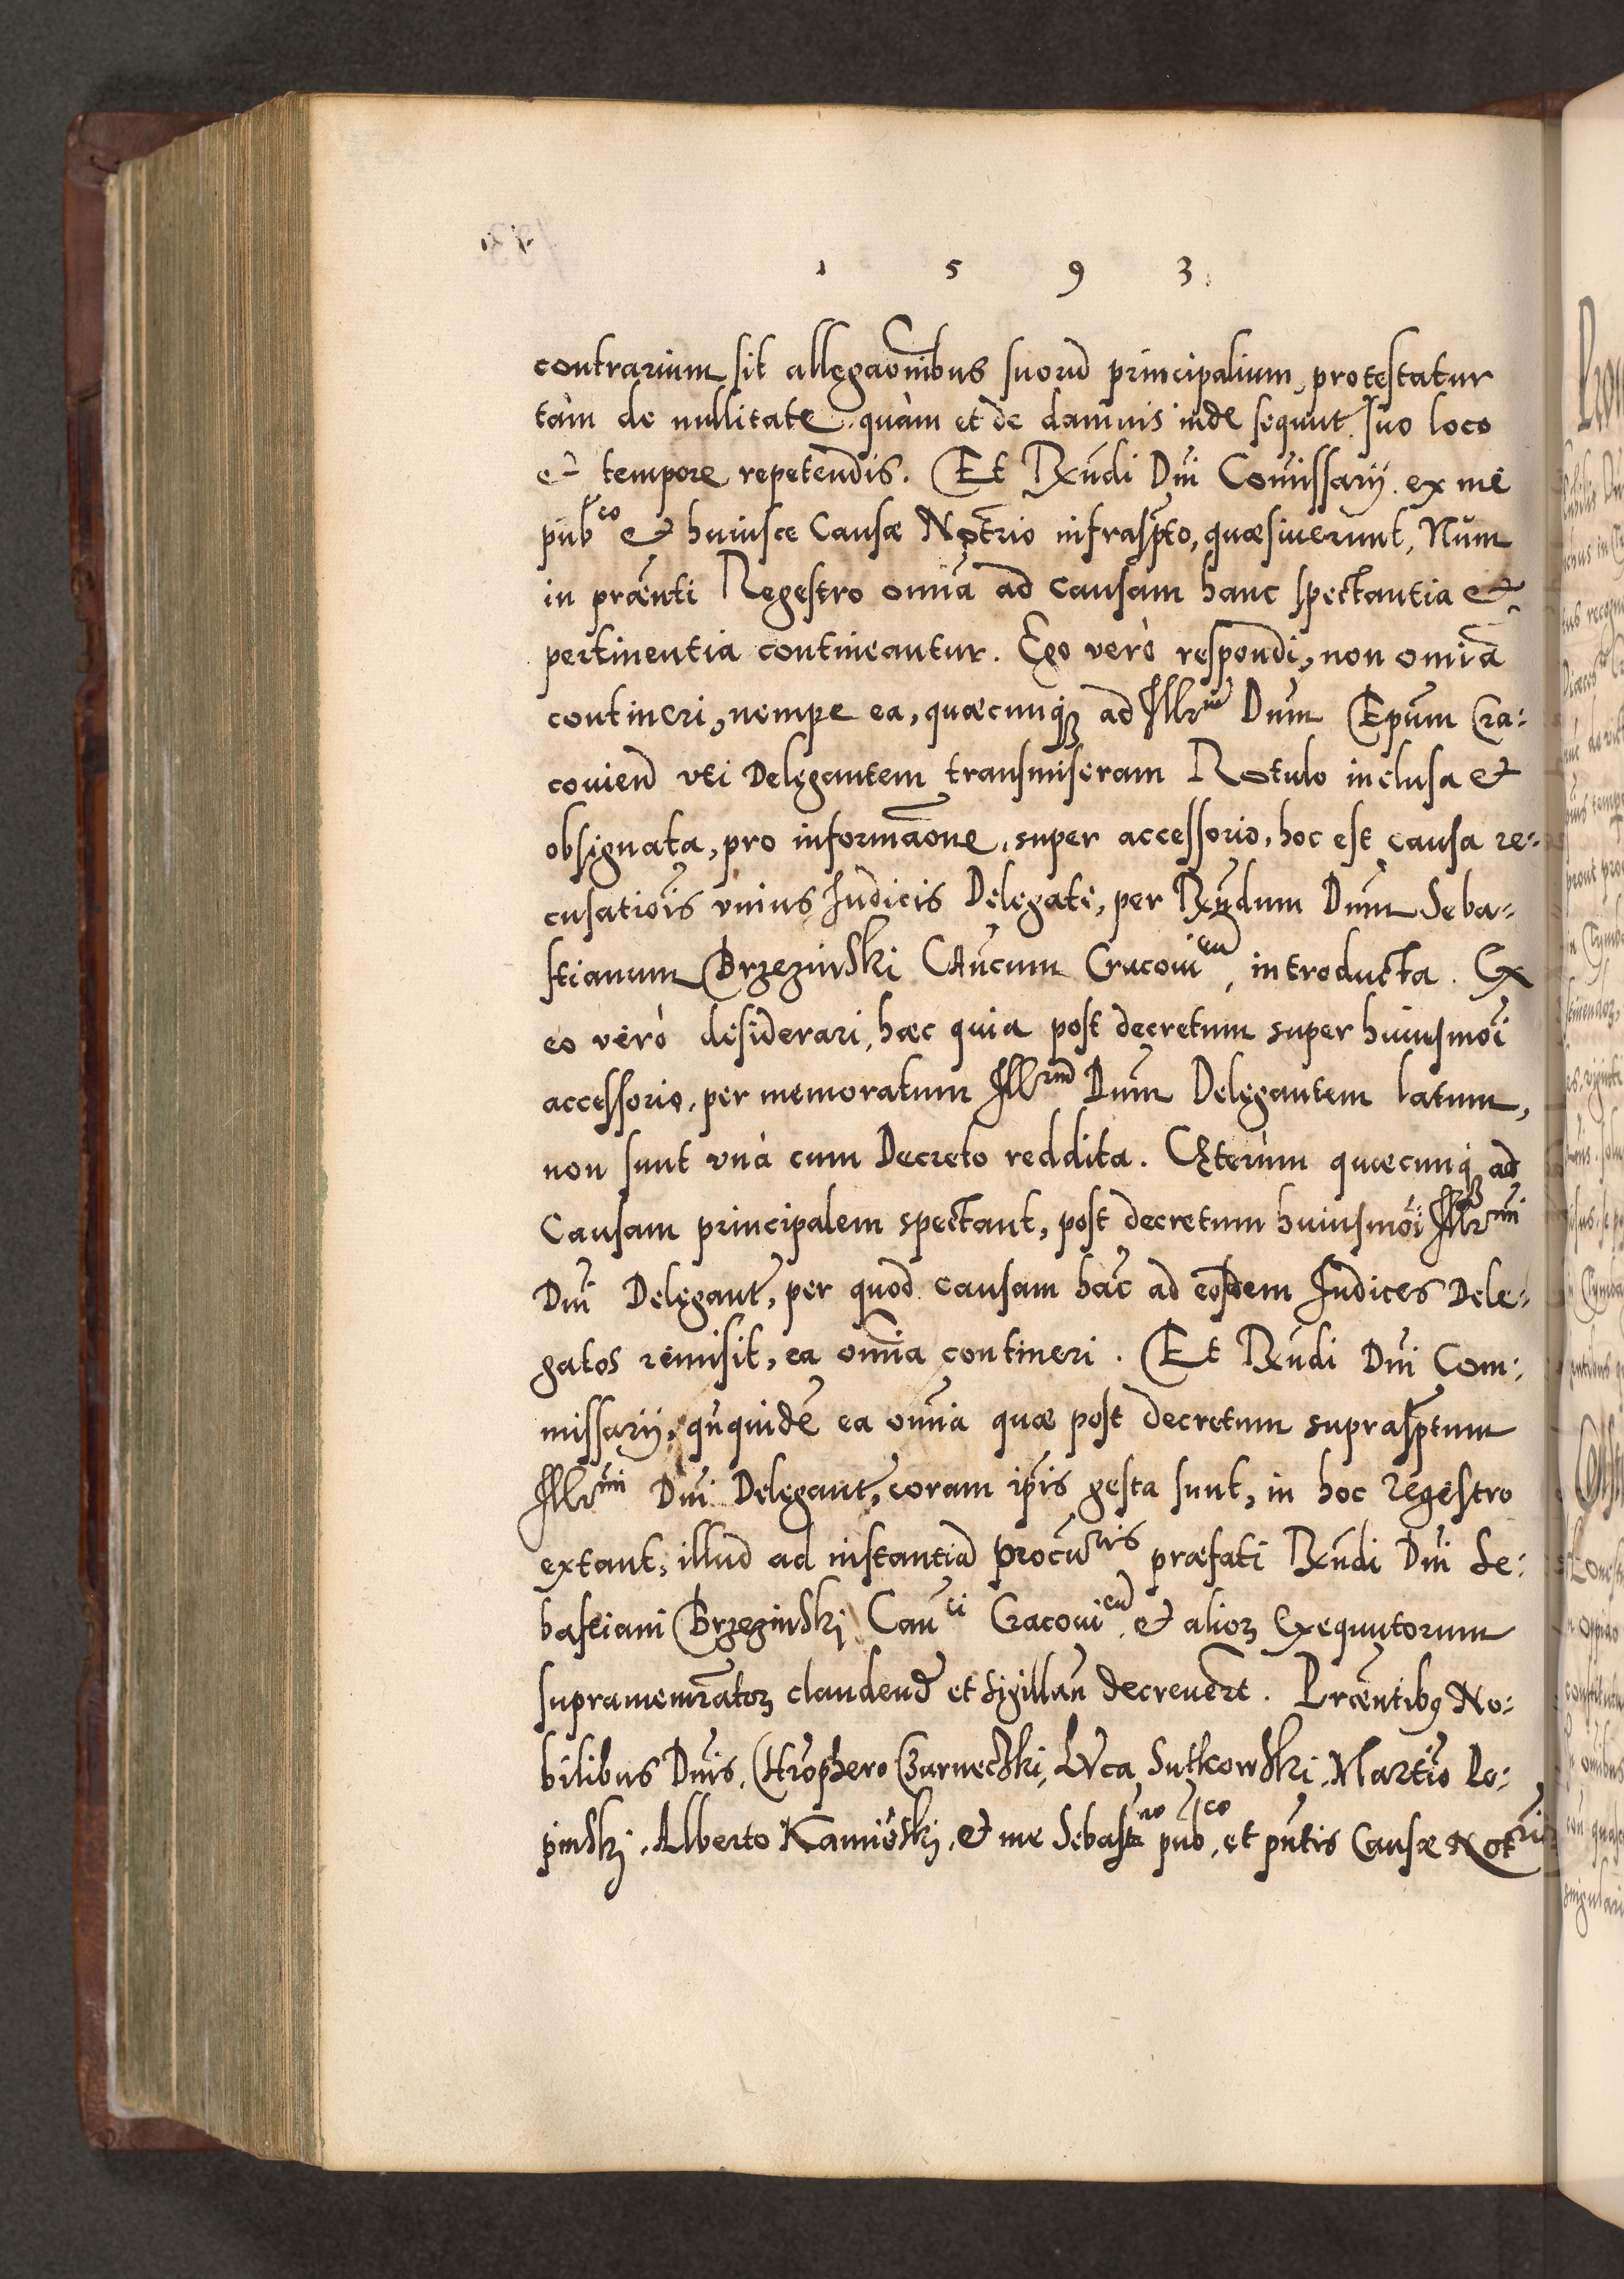 1 5 9 3
contrarium sit allegaõnibus suorũ principalium, protestatur
tàm de nullitate quàm et de damnis inde sequut. suo loco
et tempore repetendis. Et Rx̃ndi Dñi Com̃issarij ex me
pub^co et huiusce Causæ Notrio infrasp̃to, quæsiuerunt, Num
in præñti Regestro omĩa ad causam hanc spectantia et
pertinentia contineantur. Ego verò respondi, non omĩa
contineri, nempe ea, quæcunq; ad Illr^m Dñm Ep̃um Cra:
couieñ vti Delegantem transmiseram Rotulo inclusa et
obsignata, pro informãone, super accessorio, hoc est causa re:
cusatiõis vnius Iudicis Delegati, per Rx̃ndum Dñm Seba:
stianum Brzezinski Cañcum Cracoui^en, introducta. Ex
eo verò desiderari, hæc quia post decretum super huiusmõi
accessorio, per memoratum Illr^m Dñm Delegantem latum,
non sunt vnà cum Decreto reddita. Cęterùm quæcunq; ad
Causam principalem spectant, post decretum huiusmõi Illr^mi
Dñi Delegant, per quod causam hãc ad eosdem Iudices Dele:
gatos remisit, ea omñia contineri. Et Rx̃ndi Dñi Com:
missarij, qñquidẽ ea omñia quæ post decretum suprasp̃tum
Illr^mi Dñi Delegant, coram ip̃is gesta sunt, in hoc regestro
extant, illud ad instantiã procu^ris præfati Rx̃ndi Dñi Se:
bastiani Brzezinski Can^ci Cracoui^en et alioꝝ Exequutorum
supramemratoꝝ claudend et sigillañ decreuert. Præñtibꝯ No:
bilibus Dñis, Chrophero Czarnecki, Luca Sutkowski, Martio Lo:
pinski, Alberto Kamiõski, et me Sebast^no pub^co, et pñtis Causæ Not^rio